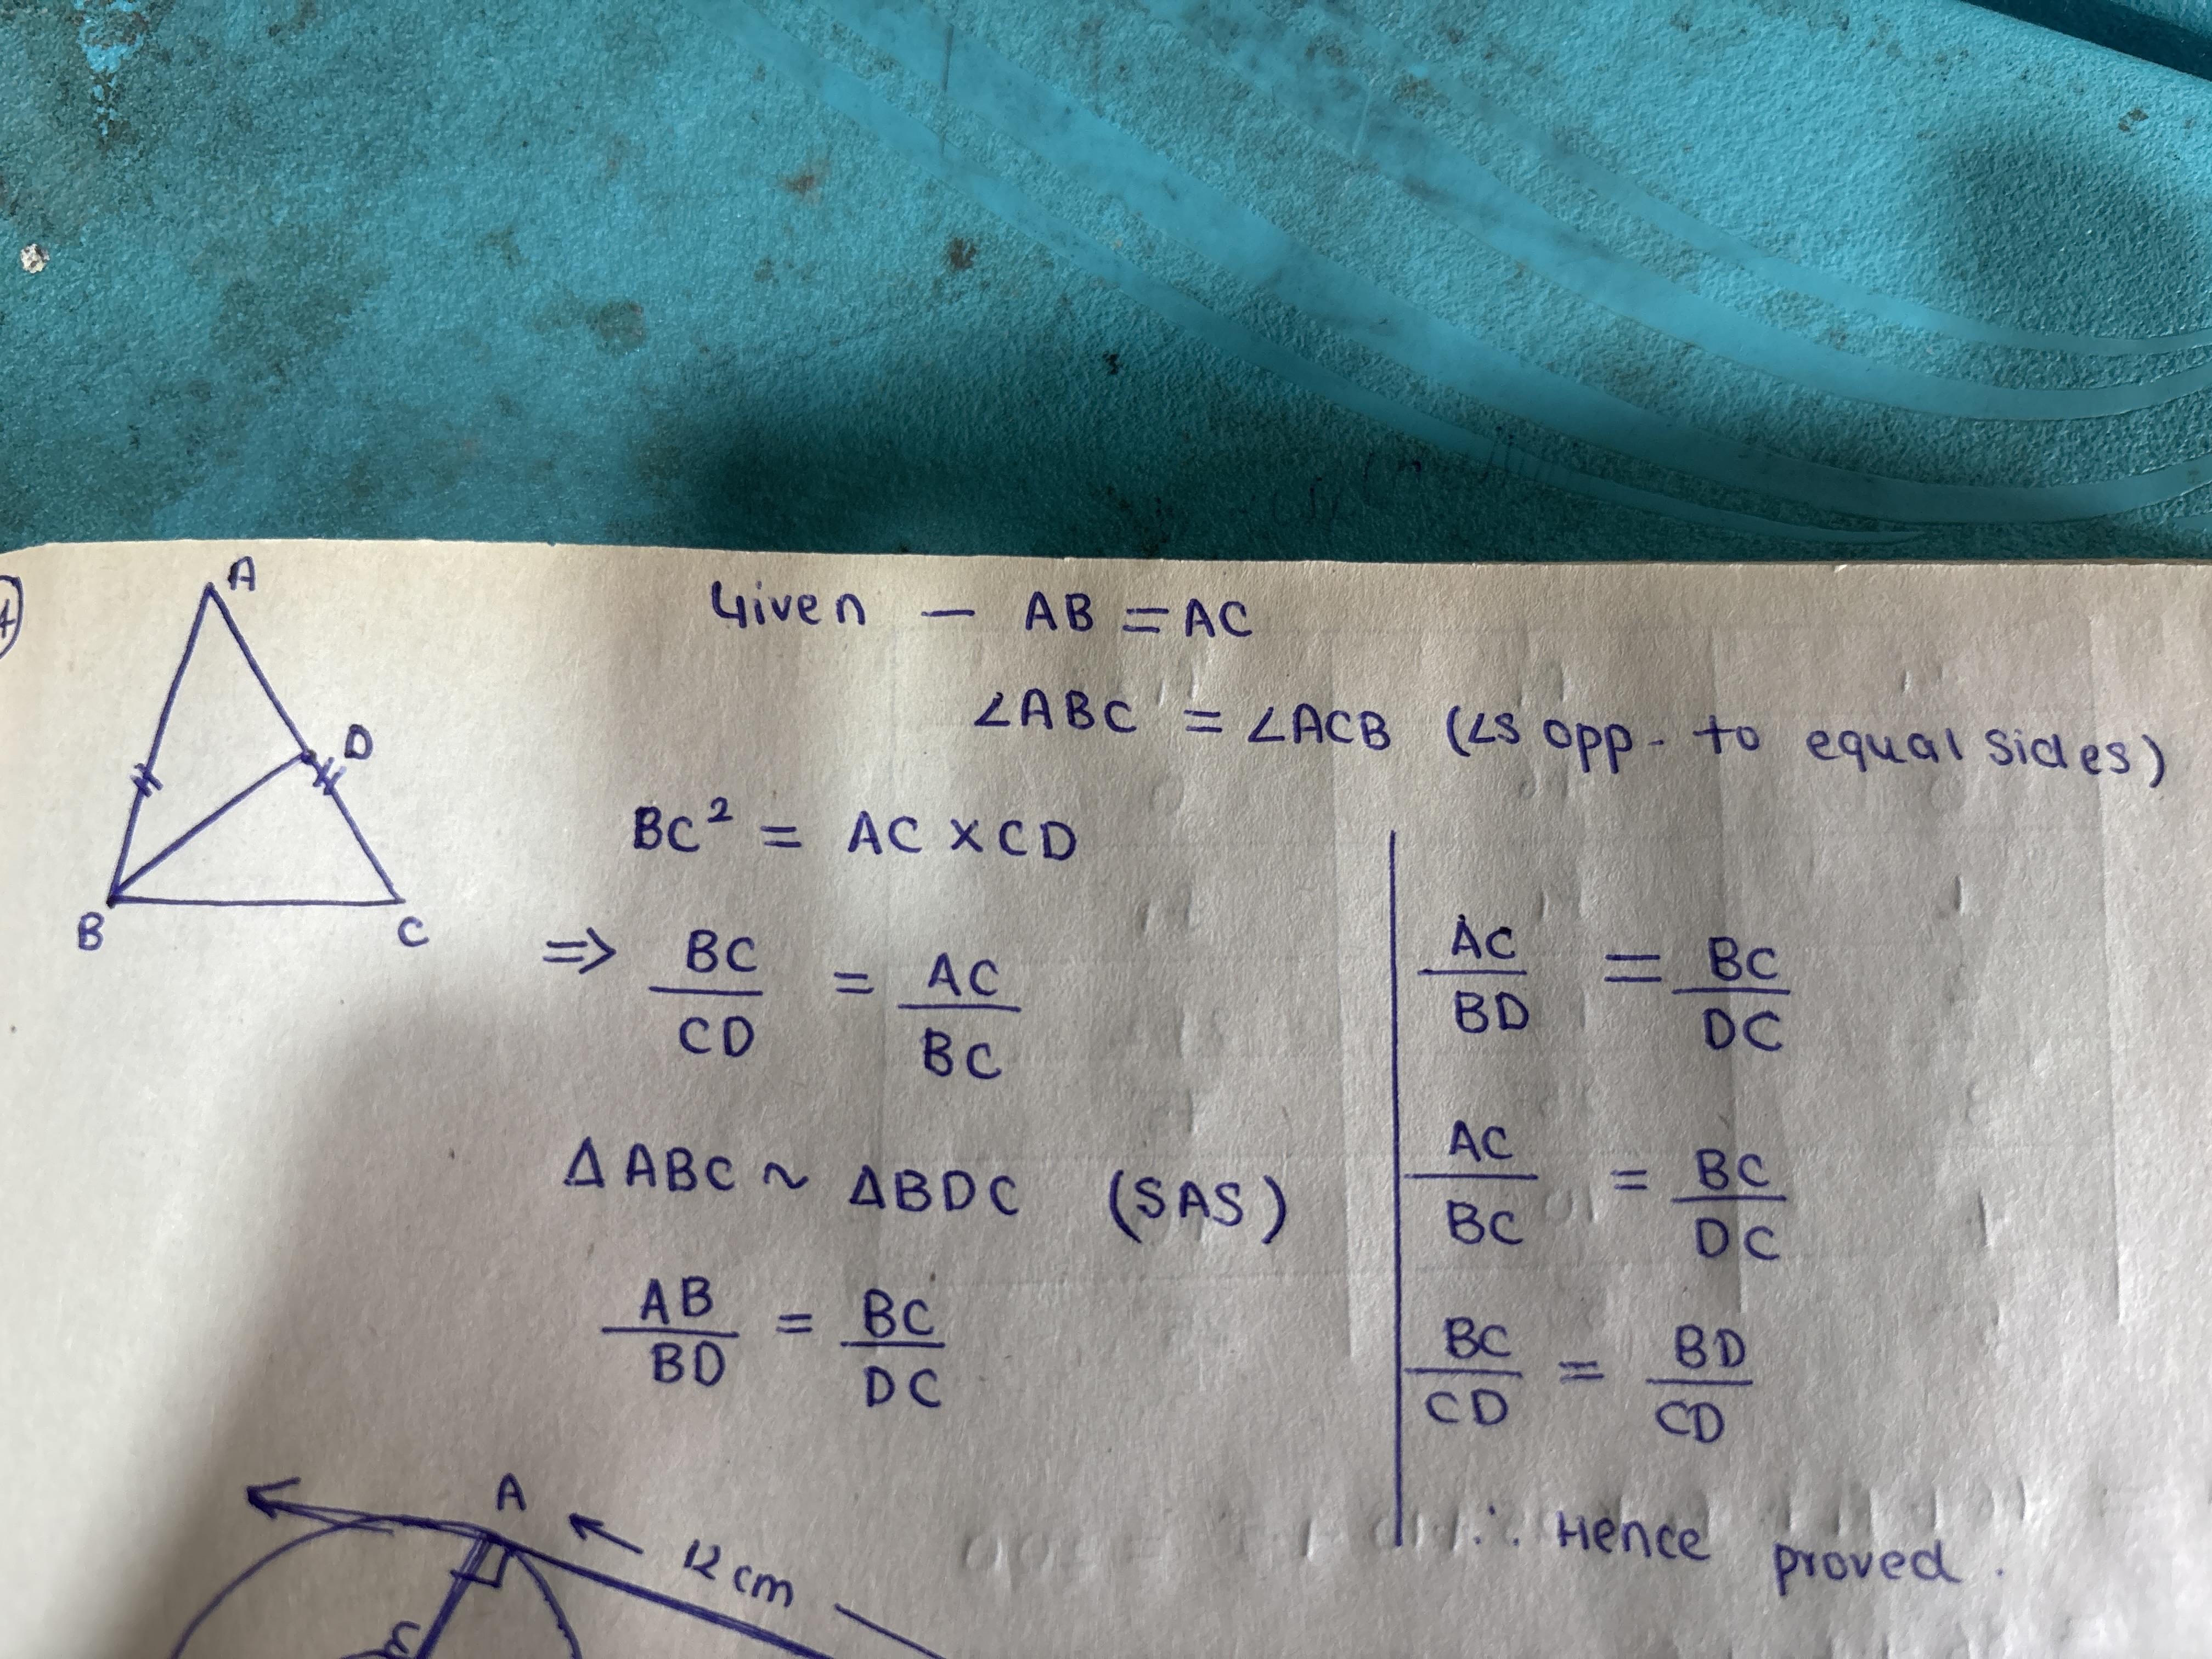 A
D
B
C
Given — AB = AC
∠ABC = ∠ACB (∠s opp. to equal sides)
BC² = AC × CD
⇒ BC/CD = AC/BC
Δ ABC ~ ΔBDC (SAS)
AB/BD = BC/DC
AC/BD = BC/DC
AC/BC = BC/DC
BC/CD = BD/CD
∴ Hence proved.
A
12 cm